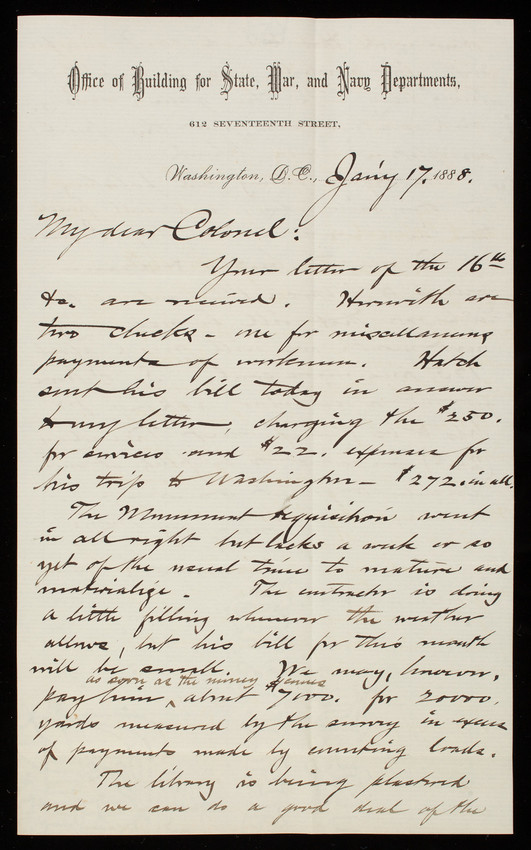 Office of Building for State, War, and Navy Departments,
612 SEVENTEENTH STREET,
Washington, D.C., Jan'y 17. 1888.
My dear Colonel:
Your letter of the 16th
&c. are received. Herewith are
two checks - one for miscellaneous
payments of workmen. Hatch
sent his bill today in answer
to my letter, charging the $250.
for services and $22. expenses for
his trip to Washington - $272. in all.
The Monument requisition went
in all right but lacks a week or so
yet of the usual time to mature and
materialize. The contractor is doing
a little filling whenever the weather
allows, but his bill for this month
will be small. We may, however,
as soon as the money comes
pay him, about $7000. for 20000.
yards measured by the survey in excess
of payments made by counting loads.
The library is being plastered
and we can do a good deal of the